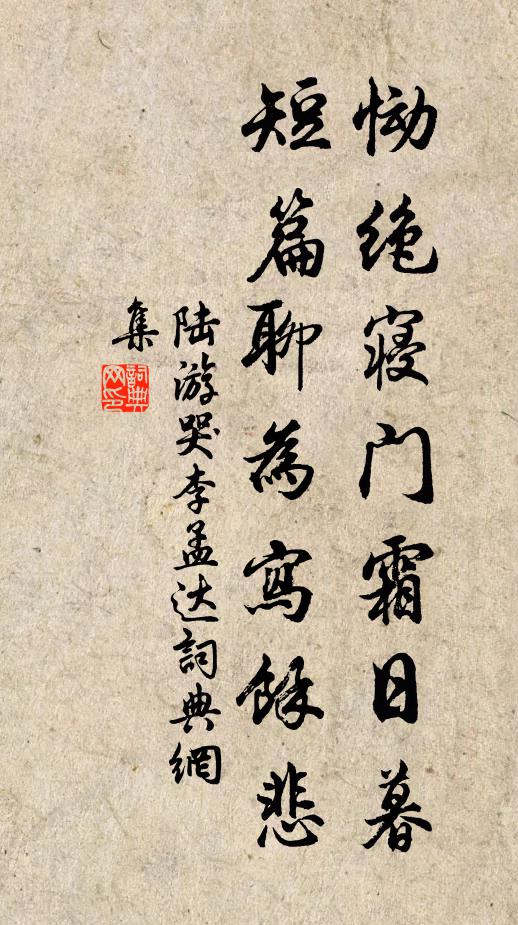 恸绝寝门霜日暮
短篇聊為寫餘悲
陆游哭李孟达詞典網
集
詞典网印